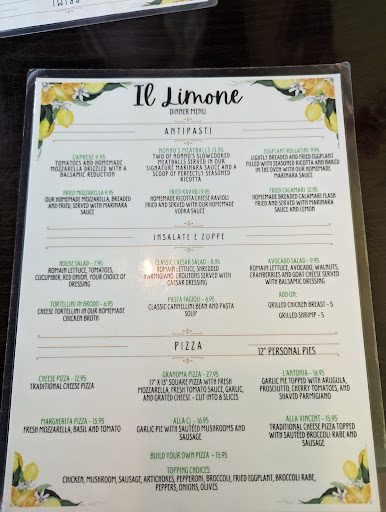 Il Limone
DINNER MENU
ANTIPASTI
CAPRESE 9.95
TOMATOES AND HOMEMADE
MOZZARELLA DRIZZLED WITH A
BALSAMIC REDUCTION
NONNO'S MEATBALLS 13.95
TWO OF NONNO'S SLOWCOOKED
MEATBALLS SERVED IN OUR
SIGNATURE MARINARA SAUCE AND A
SCOOP OF PERFECTLY SEASONED
RICOTTA
EGGPLANT ROLLATINI 9.95
LIGHTLY BREADED AND FRIED EGGPLANT
FILLED WITH SEASONED RICOTTA AND BAKED
IN THE OVEN WITH OUR HOMEMADE
MARINARA SAUCE
FRIED MOZZARELLA 9.95
OUR HOMEMADE MOZZARELLA, BREADED
AND FRIED, SERVED WITH MARINARA
SAUCE
FRIED RAVIOLI 9.95
HOMEMADE RICOTTA CHEESE RAVIOLI
FRIED AND SERVED WITH OUR HOMEMADE
VODKA SAUCE
FRIED CALAMARI 12.95
HOMEMADE BREADED CALAMARI FLASH
FRIED AND SERVED WITH MARINARA
SAUCE AND LEMON
INSALATE E ZUPPE
HOUSE SALAD - 7.95
ROMAIN LETTUCE, TOMATOES,
CUCUMBER, RED ONION, YOUR CHOICE OF
DRESSING
CLASSIC CAESAR SALAD - 8.95
ROMAIN LETTUCE, SHREDDED
PARMIGIANO, CROUTONS SERVED WITH
CAESAR DRESSING
AVOCADO SALAD - 9.95
ROMAIN LETTUCE, AVOCADO, WALNUTS,
CRANBERRIES AND GOAT CHEESE SERVED
WITH BALSAMIC DRESSING
TORTELLINI IN BRODO - 6.95
CHEESE TORTELLINI IN OUR HOMEMADE
CHICKEN BROTH
PASTA FAGIOLI - 6.95
CLASSIC CANNELLINI BEAN AND PASTA
SOUP
ADD ON:
GRILLED CHICKEN BREAST - 5
GRILLED SHRIMP - 5
PIZZA
12" PERSONAL PIES
CHEESE PIZZA - 12.95
TRADITIONAL CHEESE PIZZA
GRANDMA PIZZA - 27.95
17" X 13" SQUARE PIZZA WITH FRESH
MOZZARELLA, FRESH TOMATO SAUCE, GARLIC,
AND GRATED CHEESE - CUT INTO 8 SLICES
L'ANTONIA - 16.95
GARLIC PIE TOPPED WITH ARUGULA,
PROSCIUTTO, CHERRY TOMATOES, AND
SHAVED PARMIGIANO
MARGHERITA PIZZA - 15.95
FRESH MOZZARELLA, BASIL AND TOMATO
ALLA CJ - 16.95
GARLIC PIE WITH SAUTÉED MUSHROOMS AND
SAUSAGE
ALLA VINCENT - 15.95
TRADITIONAL CHEESE PIZZA TOPPED
WITH SAUTÉED BROCCOLI RABE AND
SAUSAGE
BUILD YOUR OWN PIZZA - 15.95
TOPPING CHOICES:
CHICKEN, MUSHROOM, SAUSAGE, ARTICHOKES, PEPPERONI, BROCCOLI, FRIED EGGPLANT, BROCCOLI RABE,
PEPPERS, ONIONS, OLIVES